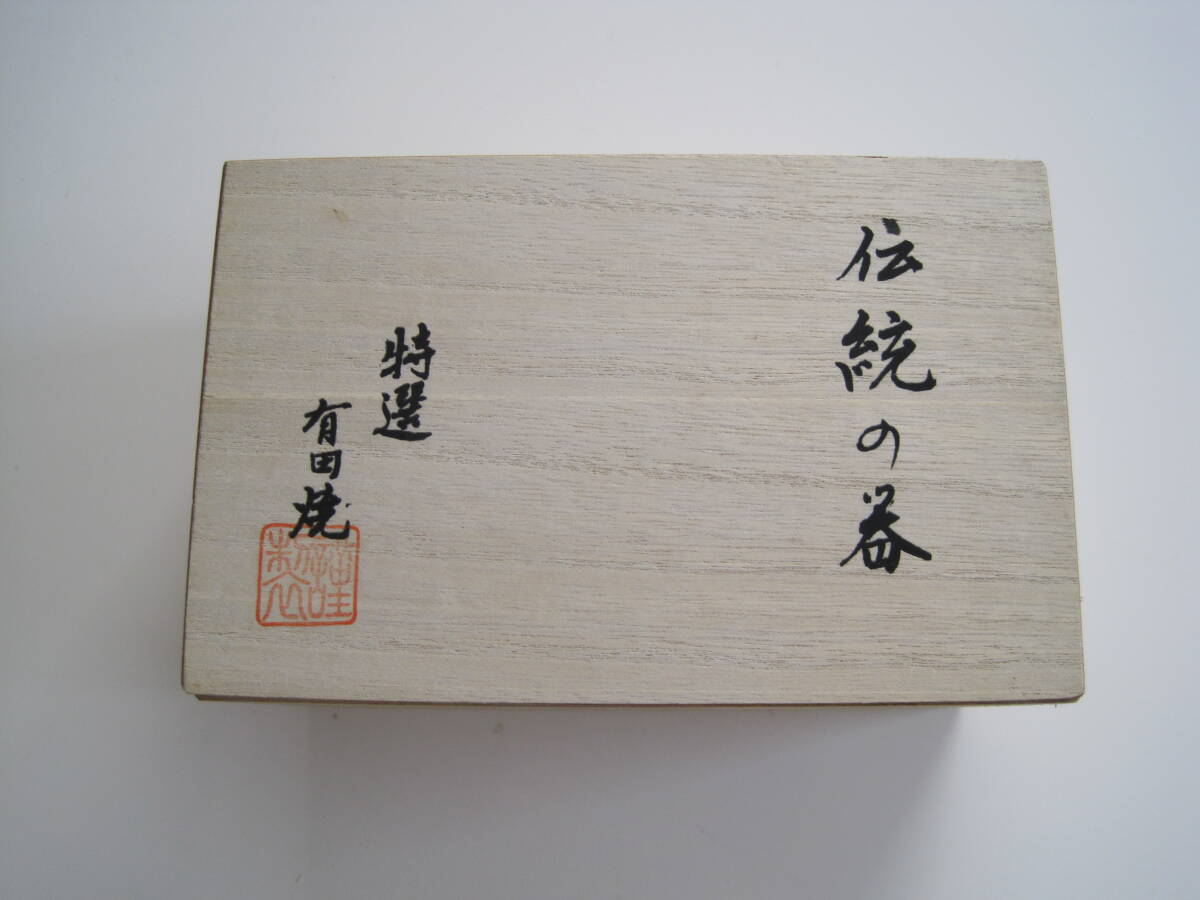 伝統の器
特選
有田焼
謹製